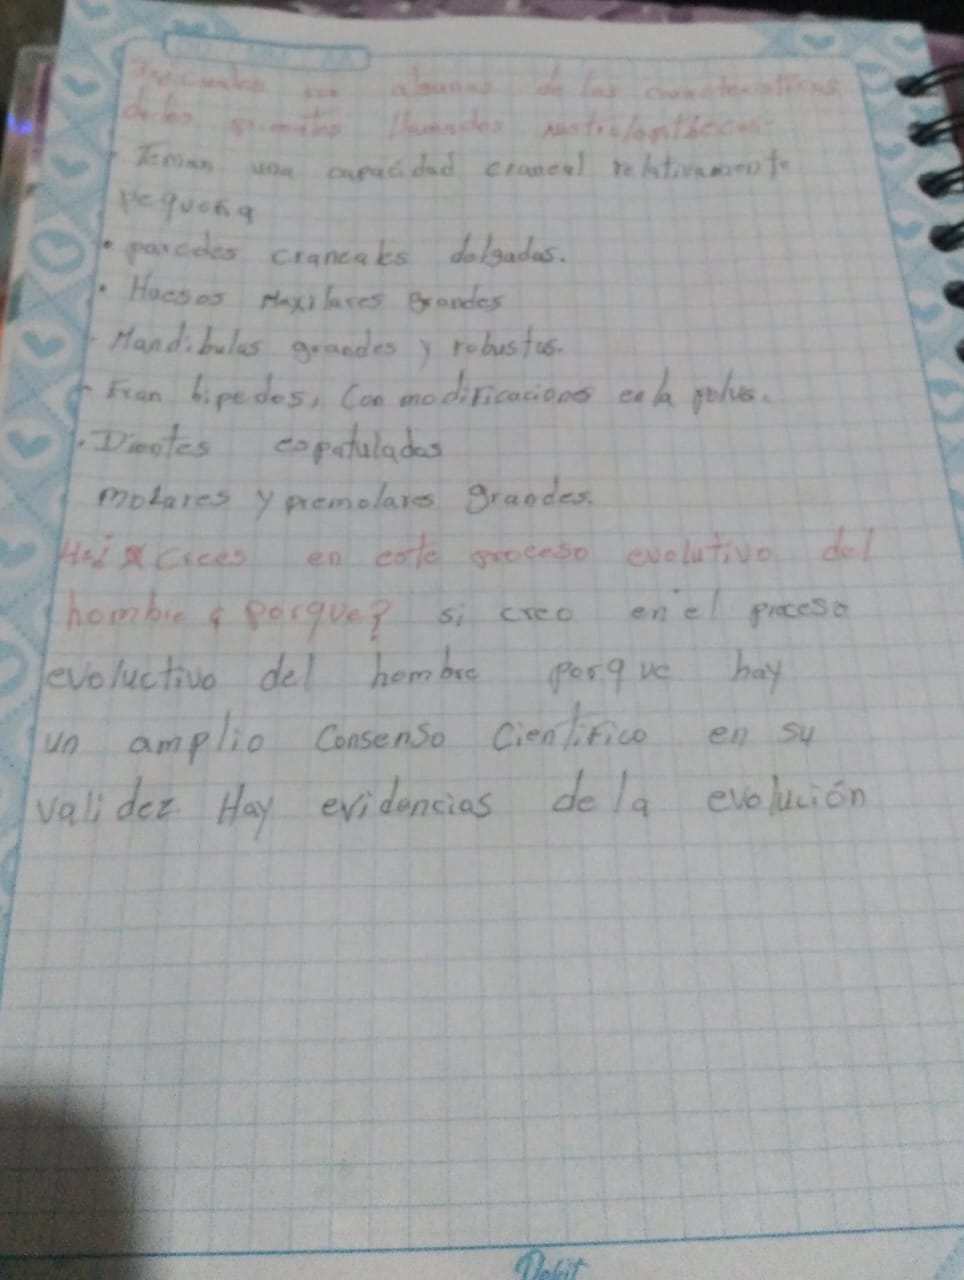 cuales son algunas de las caracteristicas
de los primates llamados australopithecus
Tenian una capacidad craneal relativamente
pequeña
• paredes craneales delgadas.
• Huesos Maxilares Grandes
Mandibulas grandes y robustas.
- Eran bipedos, Con modificaciones en la pelvis.
• Dientes espatulados
molares y premolares grandes.
Crees en este proceso evolutivo del
hombre y porque? si creo en el proceso
evoluctivo del hombre porque hay
un amplio Consenso Cientifico en su
validez Hay evidencias de la evolución